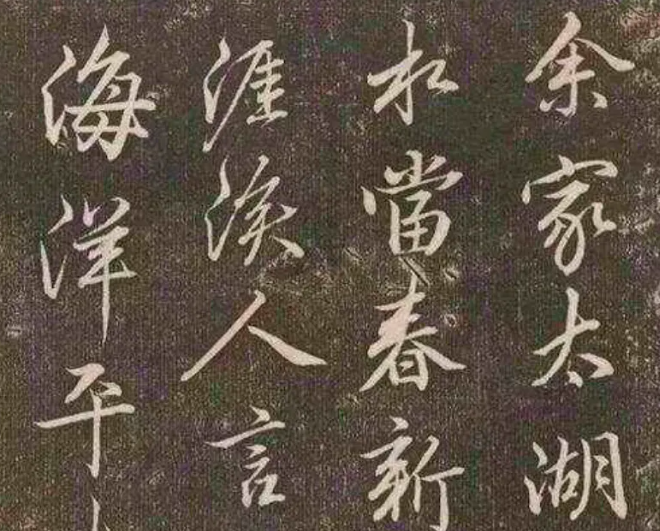 余家太湖
水當春新
涯涘人言
海洋平